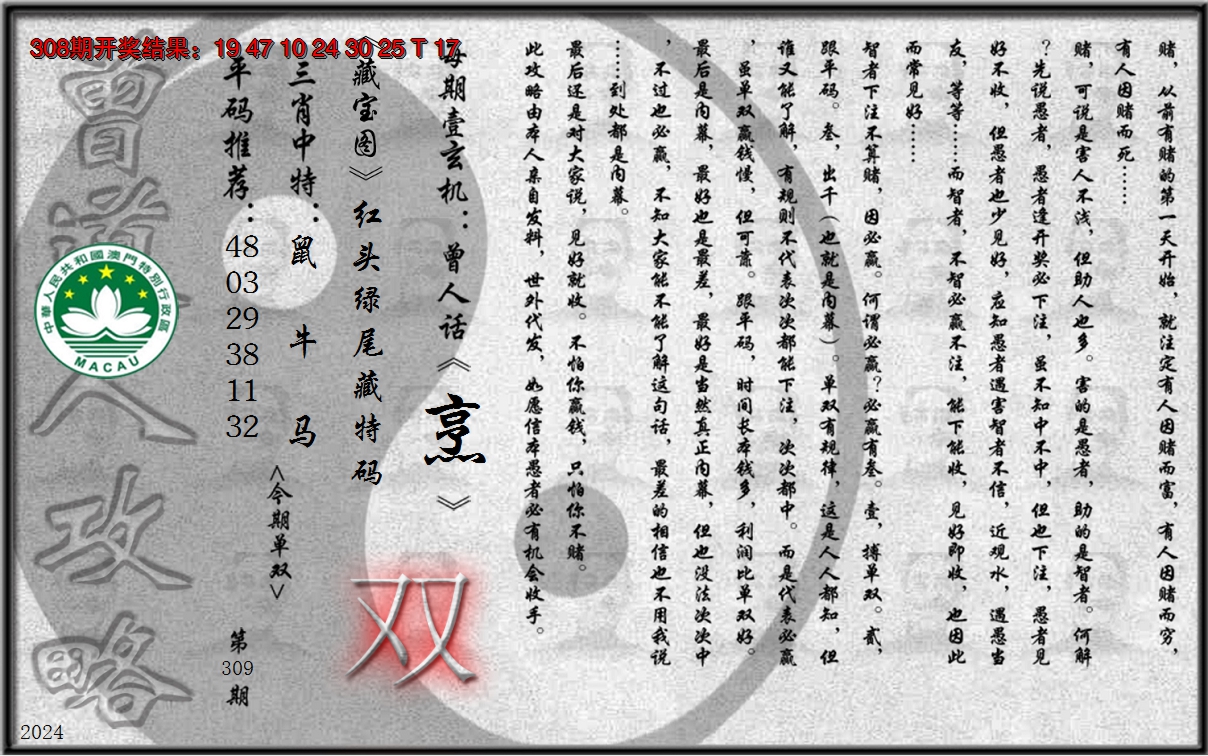 308期开奖结果：19 47 10 24 30 25 T 17
赌，从前有赌的第一天开始，就注定有人因赌而富，有人因赌而穷，
有人因赌而死……
赌，可说是害人不浅，但助人也多。害的是愚者，助的是智者。何解
？先说愚者，愚者逢开奖必下注，虽不知中不中，但也下注，愚者见
好不收，但愚者也少见好，应知愚者遇害智者不信，近观水，遇愚当
友，等等……而智者，不智必赢不注，能下能收，见好即收，也因此
而常见好……
智者下注不算赌，因必赢。何谓必赢？必赢有叁。壹，搏单双。贰，
跟平码。叁，出千（也就是内幕）。单双有规律，这是人人都知，但
谁又能了解，有规则不代表次次都能下注，次次都中。而是代表必赢
，虽单双赢钱慢，但可靠。跟平码，时间长本钱多，利润比单双好。
最后是内幕，最好也是最差，最好是当然真正内幕，但也没法次次中
，不过也必赢，不知大家能不能了解这句话，最差的相信也不用我说
……到处都是内幕。
最后还是对大家说，见好就收。不怕你赢钱，只怕你不赌。
此攻略由本人亲自发料，世外代发，如愿信本愚者必有机会收手。
每期壹玄机：曾人话《烹》
《藏宝图》红头绿尾藏特码
双
三肖中特：鼠 牛 马
<今期单双>
平码推荐：48 03 29 38 11 32
第309期
曾道人攻略
中華人民共和國澳門特別行政區
MACAU
2024